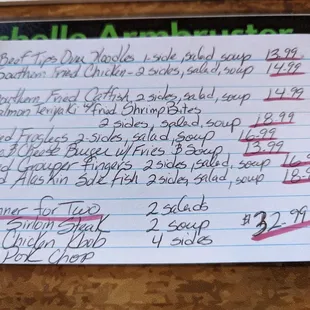 helle Armbruster
Beef Tips Over Noodles 1-side, salad, soup 13.99
Southern Fried Chicken - 2 sides, salad, soup 14.99
Southern Fried Catfish 2 sides, salad, soup 14.99
almon Teriyaki 4 Fried Shrimp Bites
2 sides, salad, soup 18.99
ed Froglegs 2-sides, salad, soup 16.99
Cheese Burger w/ Fries & Soup 13.99
d Grouper Fingers 2 sides, salad, soup
d Alaskin Sole Fish 2 sides, salad, soup 18.9
nner for Two 2 salads
Sirloin Steak 2 soup $32.99
Chicken Kbob 4 sides
Pork Chop